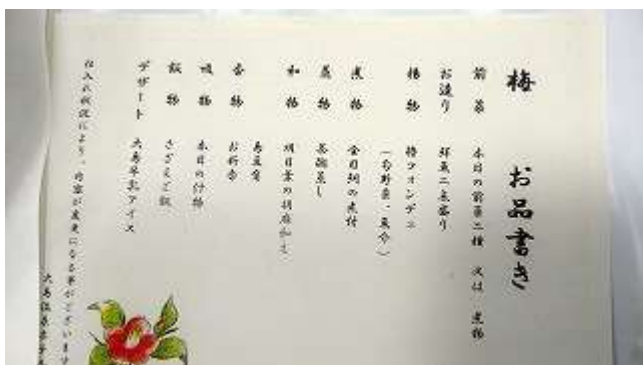 梅 お品書き
前菜 本日の前菜二種 又は 煮物
お造り 鮮魚二点盛り
揚物 椿フォンデュ
(旬野菜・魚介)
煮物 金目鯛の煮付
蒸物 茶碗蒸し
和物 明日葉の胡麻和え
島豆腐
香物 お新香
吸物 本日の汁物
飯物 さざえご飯
デザート 大島牛乳アイス
仕入れ状況により、内容が変更になる事がございます
大島温泉